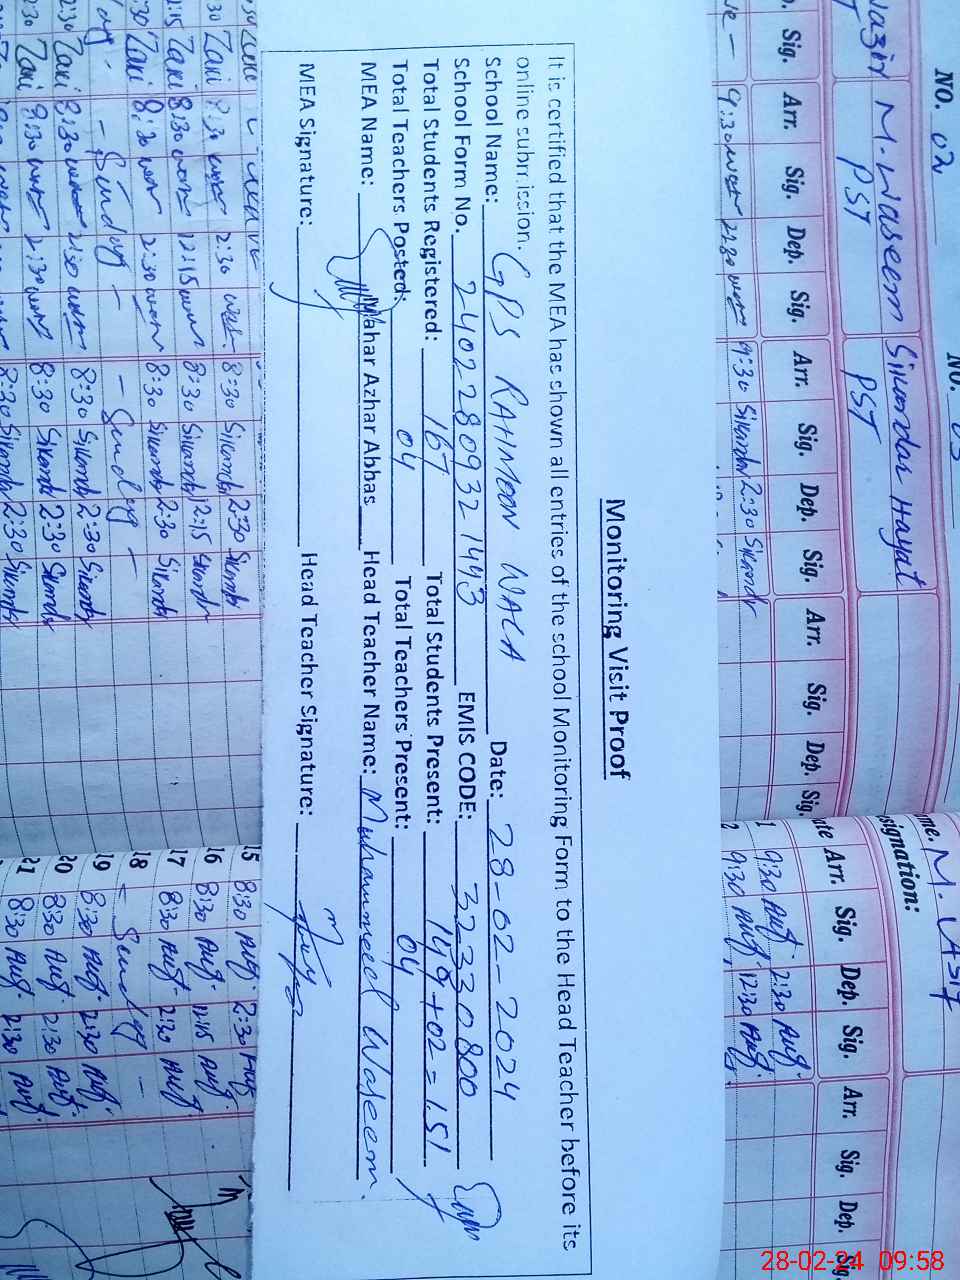 Monitoring Visit Proof
It is certified that the MEA has shown all entries of the school Monitoring Form to the Head Teacher before its
online submission.
School Name: GPS RAHMOON WALA Date: 28-02-2024
School Form No. 24022809321443 EMIS CODE: 32330800
Total Students Registered: 167 Total Students Present: 149+02=151
Total Teachers Posted: 04 Total Teachers Present: 04
MEA Name: Mahar Azhar Abbas Head Teacher Name: Muhammed Waseem.
MEA Signature: Head Teacher Signature:
NO. 02 NO. 03
M. Waseem Sikandar Hayat
PST PST
Sig. Arr. Sig. Dep. Sig. Arr. Sig. Dep. Sig. Arr. Sig. Dep. Sig.
9:30 2:30 9:30 Sikandr 2:30 Sikandr
8:30 2:30 8:30 Sikandr 2:30 Sikandr
Zaki 8:30 12:15 8:30 Sikandr 12:15 Sikandr
Zaki 8:30 2:30 8:30 Sikandr 2:30 Sikandr
- Sunday - - Sunday -
Zaki 8:30 2:30 8:30 Sikandr 2:30 Sikandr
Zaki 8:30 2:30 8:30 Sikandr 2:30 Sikandr
8:30 Sikandr 2:30 Sikandr
M. Asif
signation:
Arr. Sig. Dep. Sig. Arr. Sig. Dep. Sig.
1 9:30 Asif. 2:30 Asif.
2 9:30 Asif. 12:30 Asif.
15 8:30 Asif. 2:30 Asif
16 8:30 Asif. 12:15 Asif.
17 8:30 Asif. 2:30 Asif
18 - Sunday -
19 8:30 Asif. 2:30 Asif.
20 8:30 Asif. 2:30 Asif.
21 8:30 Asif. 2:30 Asif.
28-02-24 09:58